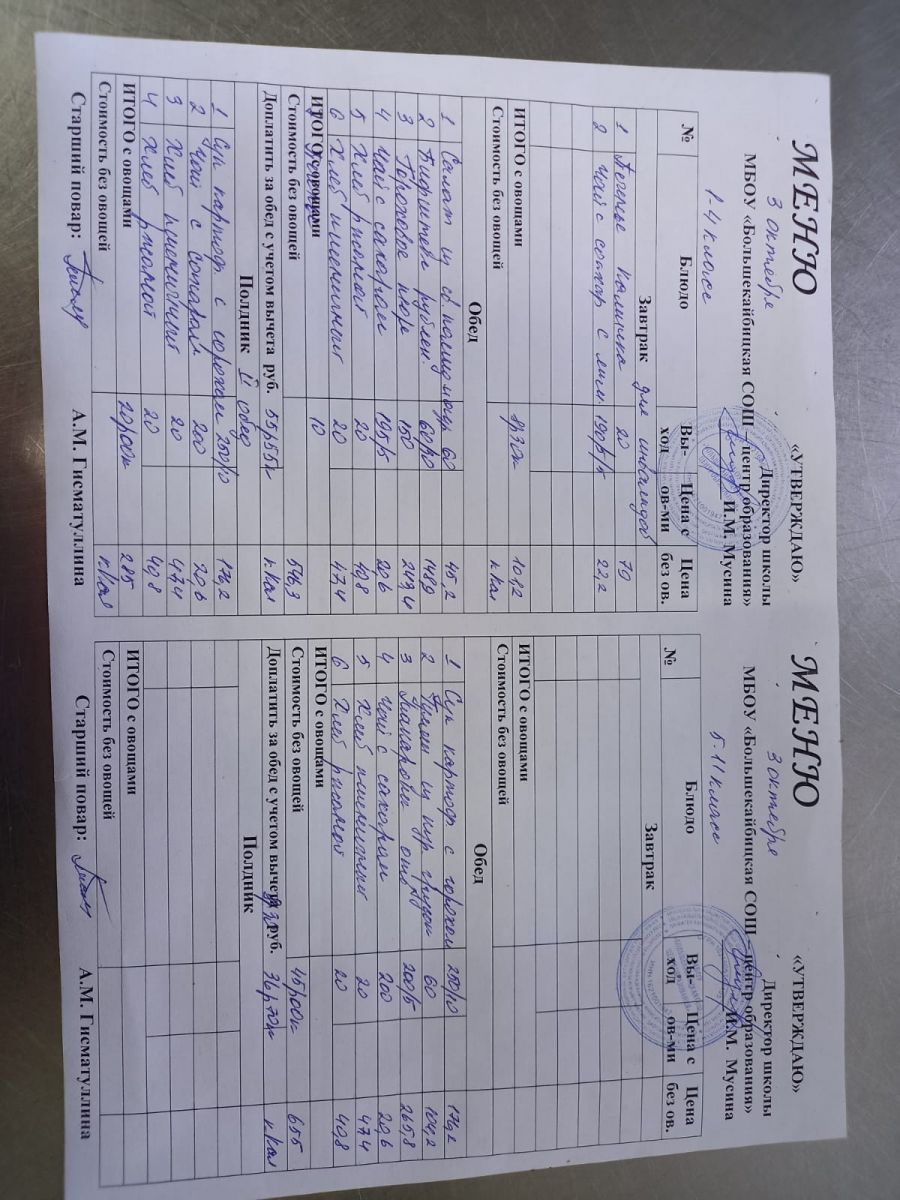 «УТВЕРЖДАЮ»
Директор школы
МБОУ «Большекайбицкая СОШ – центр образования»
И.М. Мусина
МЕНЮ
3 октября
1-4 класс
№ Блюдо Вы-ход Цена с ов-ми Цена без ов.
Завтрак для инвалидов
1 Печенье 20 70
2 Чай с сахар с лим 190/5/5 22,2
ИТОГО с овощами 8р30к 101,2
Стоимость без овощей ккал
Обед
1 Салат из св помидор 60 45,2
2 Бифштекс рублен. 60/30 148,9
3 Гороховое пюре 150 247,4
4 Чай с сахаром 195/5 20,6
5 Хлеб ржаной 20 40,8
6 Хлеб пшеничный 20 47,4
ИТОГО с овощами 10
Стоимость без овощей 546,3
Доплатить за обед с учетом вычета руб. 55р55к ккал
Полдник II обед
1 Суп картоф с горохом 250/10 176,2
2 Чай с сахаром 200 20,6
3 Хлеб пшеничный 20 47,4
4 Хлеб ржаной 20 40,8
ИТОГО с овощами 20р00к 285
Стоимость без овощей ккал
Старший повар: А.М. Гисматуллина
«УТВЕРЖДАЮ»
Директор школы
МБОУ «Большекайбицкая СОШ – центр образования»
И.М. Мусина
МЕНЮ
3 октября
5-11 класс
№ Блюдо Вы-ход Цена с ов-ми Цена без ов.
Завтрак
ИТОГО с овощами
Стоимость без овощей
Обед
1 Суп картоф с горохом 250/10 176,2
2 из кур грудки 60 104,2
3 Макароны отв 200/5 265,8
4 Чай с сахаром 200 20,6
5 Хлеб пшеничный 20 47,4
6 Хлеб ржаной 20 40,8
ИТОГО с овощами
Стоимость без овощей 45р00к 655
Доплатить за обед с учетом вычета руб. 36р70к ккал
Полдник
ИТОГО с овощами
Стоимость без овощей
Старший повар: А.М. Гисматуллина